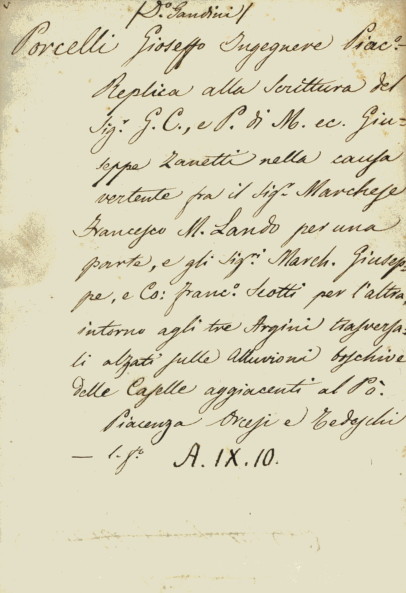 (D.º Gandini)
Porcelli Gioseffo Ingegnere Piac.º
Replica alla scrittura del
Sig.r G. C., e P. di M. ec. Giu=
seppe Zanetti nella causa
vertente fra il sig.r Marchese
Francesco M. Lando per una
parte, e gli sig.ri March. Giusep-
pe, e Co: Franc.º Scotti per l'altra,
intorno agli tre Argini trasversa-
li alzati sulle alluvioni boschive
delle Caselle aggiacenti al Pò.
Piacenza Orcesi e Tedeschi
A.IX.10.